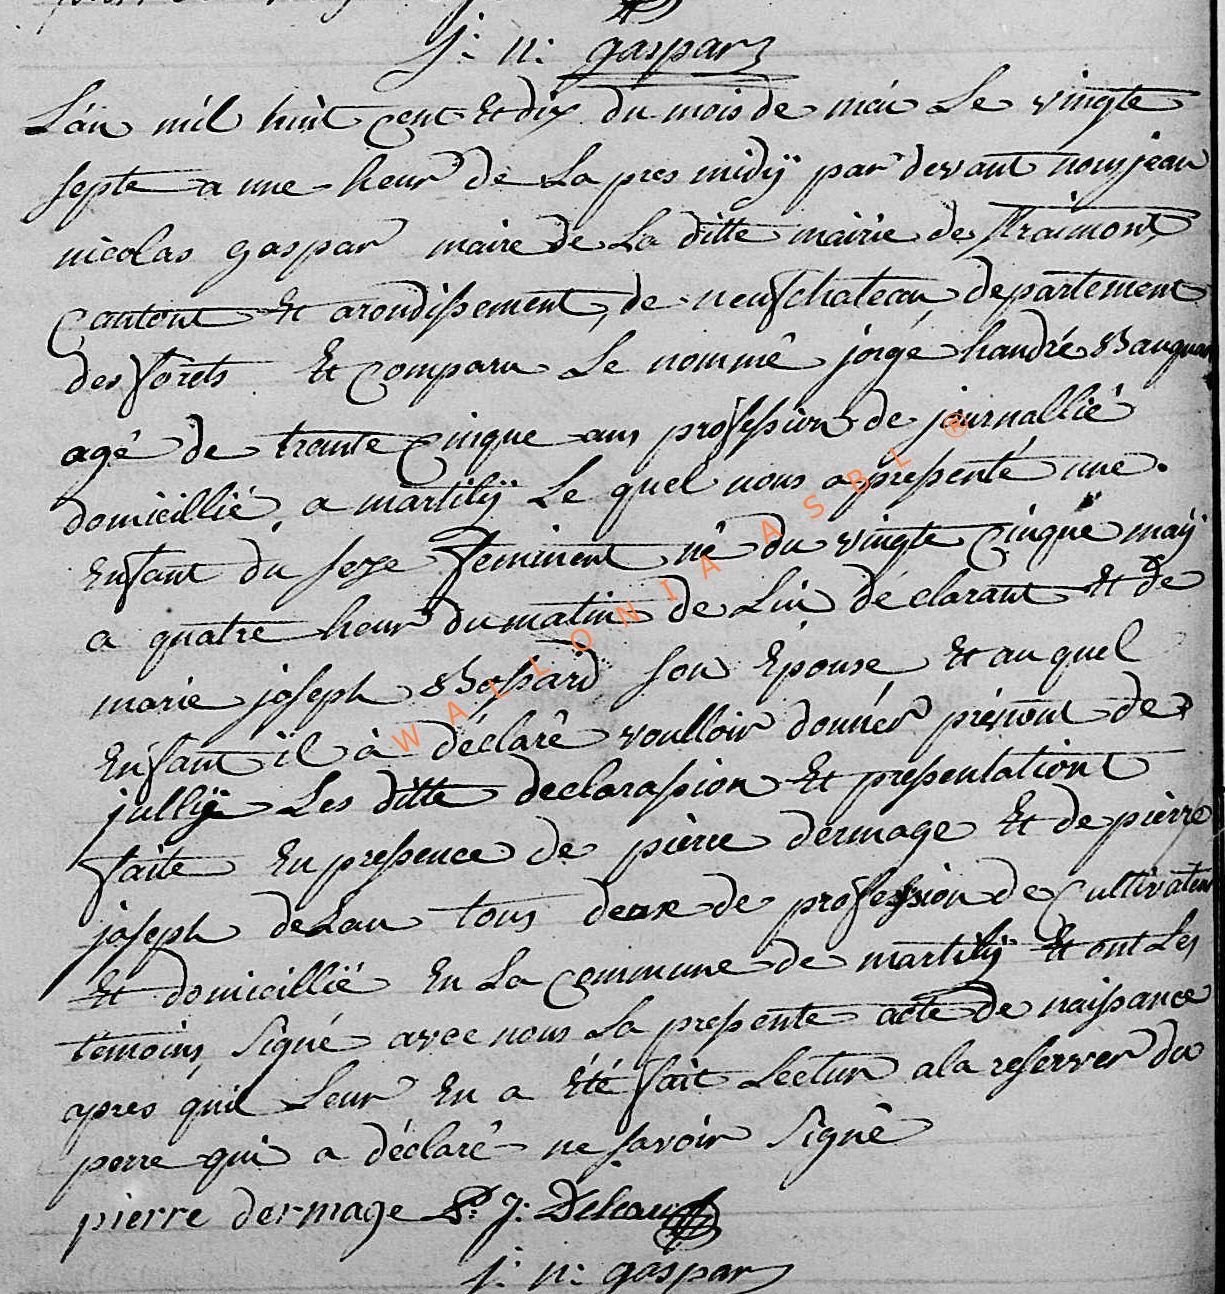 j: n: gaspar
L'an mil huit cent Et dix du mois de mai Le vingte
septe a une heur de La pres midÿ par devant nous jean
nicolas gaspar maire de La ditte mairie de Straimont
cantont Et arondissement de neufchateau departement
des forets Et Comparu Le nommé jorge handré
agé de trante cinque ans profession de journallié
domicillié a martilÿ Le quel nous a pressenté une
Enfant du sexe feminent né du vingte cinque maÿ
a quatre heur du matin de Lui déclarant Et de
marie joseph Bossard son Epouse Et au quel
Enfant il à déclaré voulloir donner prénont de
jullÿ Les ditte declarassion Et pressentationt
faite En pressence de pierre dermage Et de pierre
joseph deLau tous deux de profession de Cultivateur
Et domicillié En La Commune de martilÿ Et ont Les
temoins signé avec nous La pressente acte de naissance
apres quil Leur En a Eté fait Lectur a la reserver du
perre qui a déclaré ne savoir signé
pierre dermage P: J: Deleau
j: n: gaspar
W A L L O N I A A S B L ®